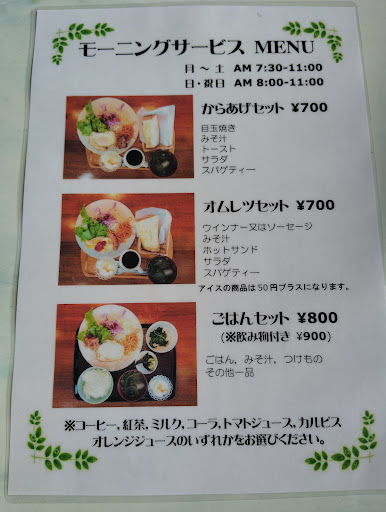 モーニングサービス MENU
月 ～ 土 AM 7:30-11:00
日・祝日 AM 8:00-11:00
からあげセット ¥700
目玉焼き
みそ汁
トースト
サラダ
スパゲティー
オムレツセット ¥700
ウインナー又はソーセージ
みそ汁
ホットサンド
サラダ
スパゲティー
アイスの商品は50円プラスになります。
ごはんセット ¥800
(※飲み物付き ¥900)
ごはん, みそ汁, つけもの
その他一品
※コーヒー, 紅茶, ミルク, コーラ, トマトジュース, カルピス
オレンジジュースのいずれかをお選びください。